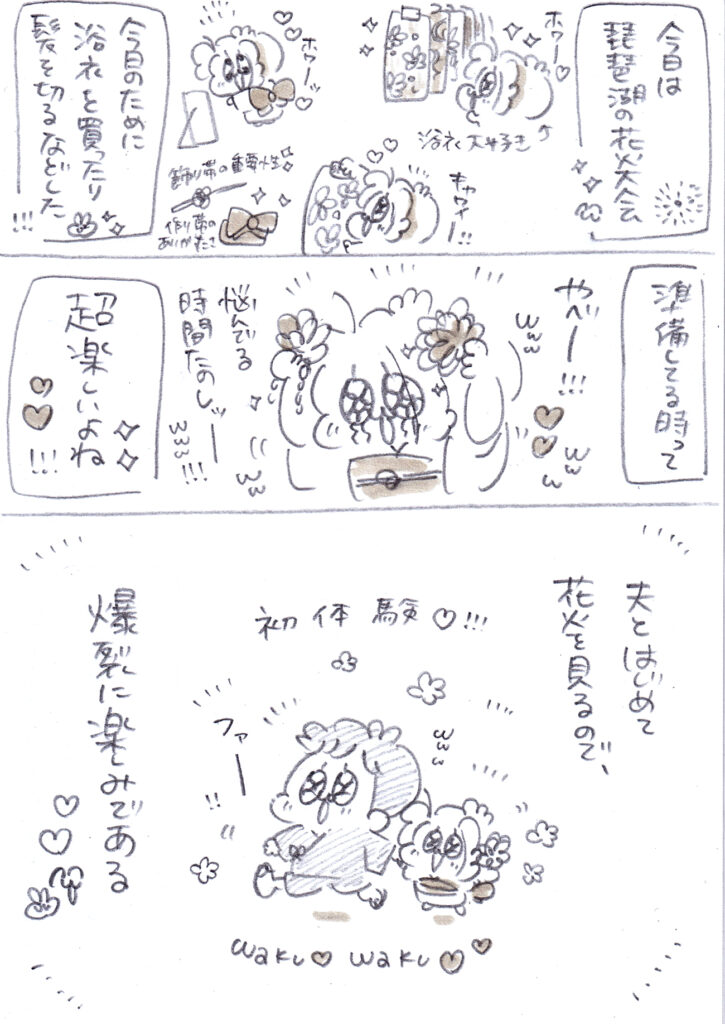 今日は
琵琶湖の花火大会
ホワーッ
浴衣大好き
キャワイー!!
ホワーッ
飾り帯の重要性
作り帯の
ありがたさ
今日のために
浴衣を買ったり
髪を切るなどした
!!!
準備してる時って
やべー!!!
悩んでる
時間たのしッー
!!!
超楽しいよね
!!!
夫とはじめて
花火を見るので、
初体験♡!!!
ファー
!!
爆裂に楽しみである
waku♡waku♡